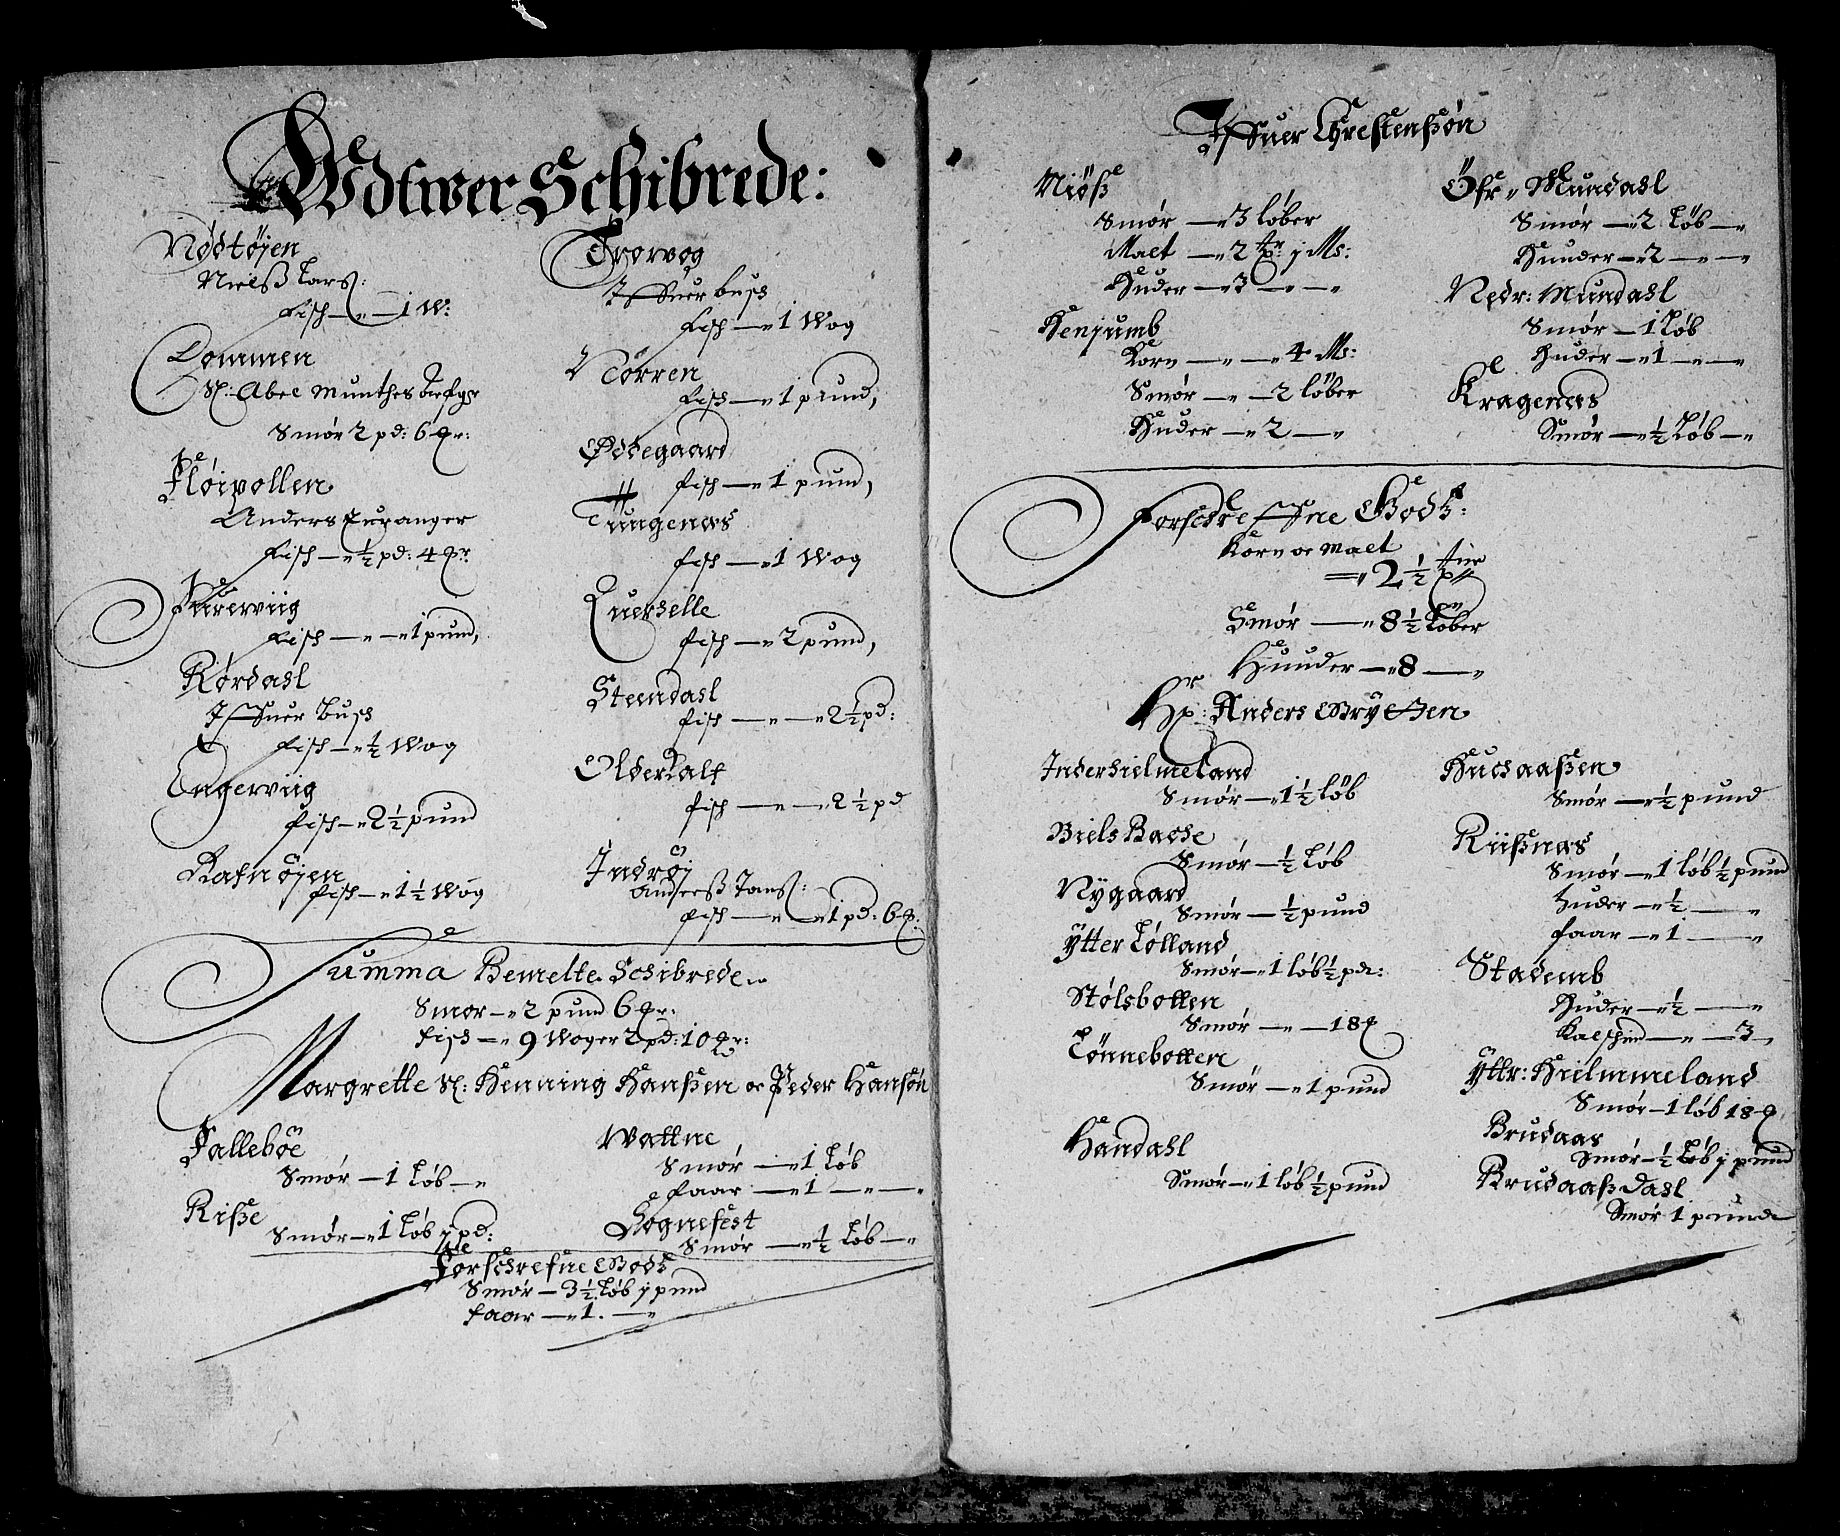 Wdtwer Schibrede:
Nødtøjen
Nielß Larß:
fisch — 1 W:
Dommen
Sl: Abel Munthes Arfgr
Smør 2 pd: 6 ℔r:
Fløipollen
Anders Euranger
fisch — ½ pd: 4 ℔r
Fureviig
fisch — 1 pund,
Rørdall
Iffuer Buch
fisch — ½ Wog
Engerviig
fisch — 2½ pund
Rafnøjen
fisch — 1½ Wog
Trovog
Iffuer buch
fisch — 1 Wog
Nörren
fisch — 1 pund,
Ødegaard
fisch — 1 pund,
Tungenæs
fisch — 1 Wog
Querhelle
fisch — 2 pund,
Steendall
fisch — 2½ pd:
Olderkalf
fisch — 2½ pd
Indrøj
Anderß Janß:
fisch — 1 pd: 6 ℔.
Summa Bemelte Schibrede
Smør — 2 pund 6 ℔r:
fisch — 9 Woger 2 pd: 10 ℔r:
Margrette Sl: Henning Hanßen oc Peder Hansøn
Fallebøe
Smør — 1 Løb —
Riße
Smør — 1 Løb j pd:
Wattne
Smør — 1 Løb
faar — 1 —
Sognefest
Smør — ½ Løb —
Forschrefne Godtz
Smør — 3½ Løb j pund
faar — 1. —
Iffuer Chrestenßøn
Niøß
Smør — 3 løber
Malt — 2 tr j Ms:
Huder — 3 —
Henjumb
Korn — 4 Ms:
Smør — 2 løber
Huder — 2 —
Öfr Mundall
Smør — 2 Løb —
Huuder — 2 —
Nedr: Mundall
Smør — 1 Løb
Huder — 1 —
Kragenæs
Smør — ½ Løb —
Forschreffne Godtz:
Korn oc Malt
— 2½
Smør — 8½ Løber
Huuder — 8 —
Hr: Anders Gryssen
Inderhielmeland
Smør — 1½ løb
Biels Bache
Smør — ½ Løb
Nygaard
Smør — ½ pund
Ytter Lølland
Smør — 1 løb ½ pd:
Stølsbotten
Smør — 18 ℔
Tönnebotten
Smør — 1 pund
Handall
Smør — 1 løb ½ pund
Huchaaßen
Smør — ½ pund
Riißnæs
Smør — 1 løb ½ pund
Huder — ½ —
faar — 1 —
Stademb
Huder — ½ —
Kalfschind — 3,
Yttr: Hielmmeland
Smør — 1 løb 18 ℔
Brudaas
Smør — ½ Løb j pund
Brudaaß dall
Smør 1 pund